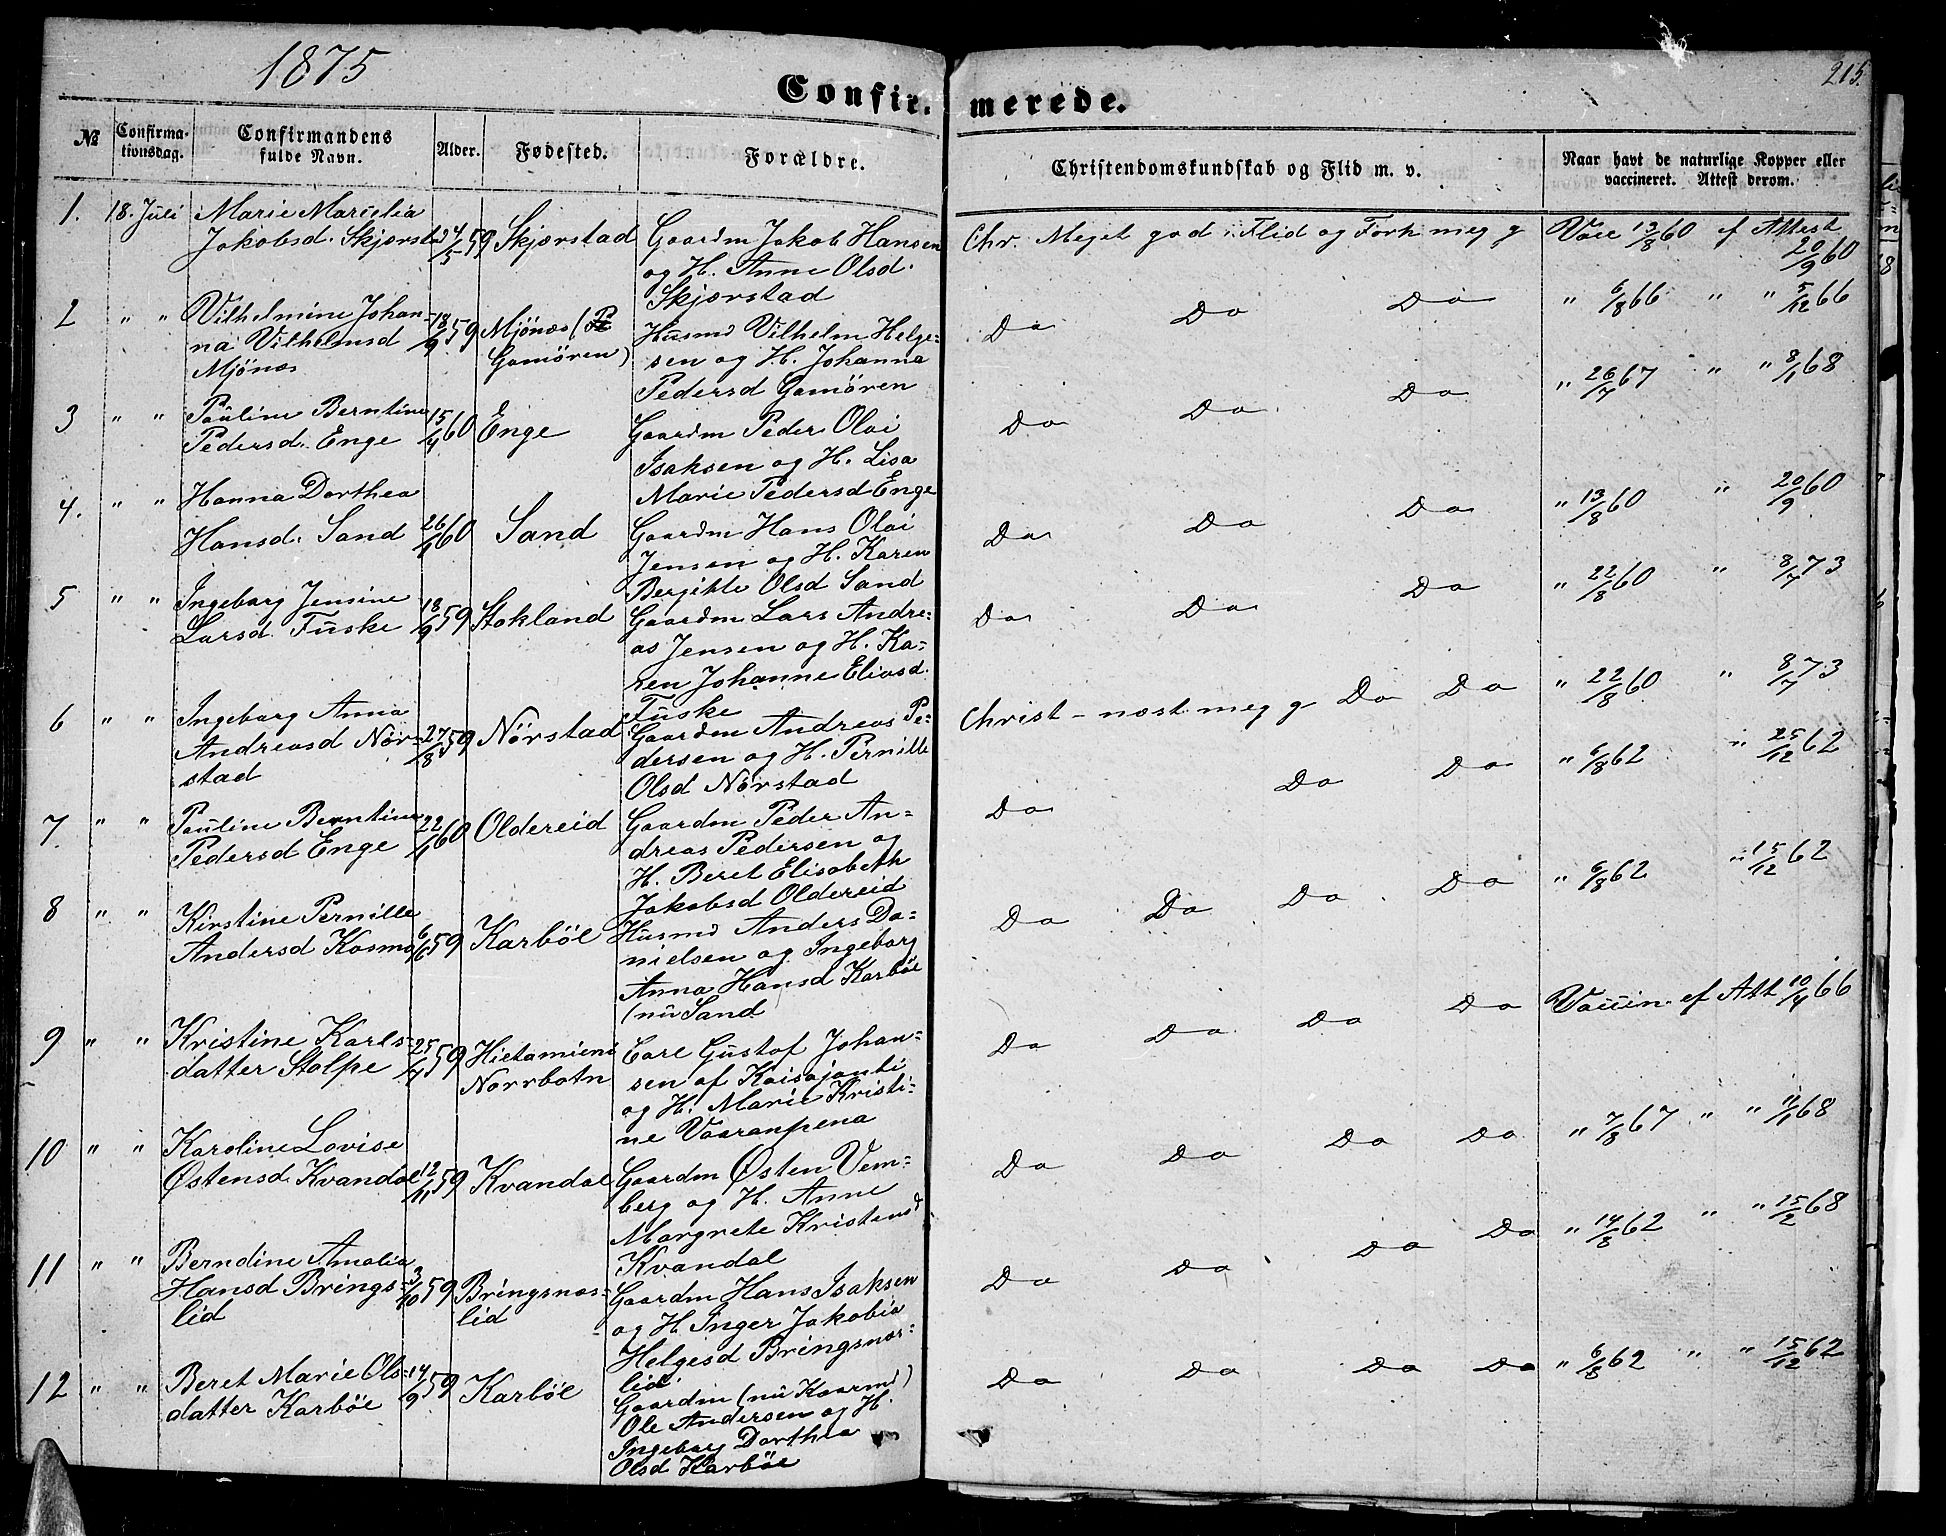 1875
213.
Confir- merede.
№
Confirma-
tionsdag.
Confirmandens
fulde Navn.
Alder.
Fødested.
Forældre.
Christendomskundskab og Flid m. v.
Naar havt de naturlige Kopper eller
vaccineret. Attest derom.
1. 18. Juli Marie Marselia
Jakobsd. Skjærstd 24/5 59 Skjærstad
Gaardm Jakob Hansen
og H. Anne Olsd.
Skjærstad
Chr. Meget god. Flid og Forh meg g
Vacc 13/8 60 ef Attest
20/9 60
2 " " Vilhelmine Johan-
na Vilhelmsd
Mjönæs
18/9 59 Mjönæs (
Gamören)
Husmd Vilhelm Helge-
sen og H. Johanna
Pedersd Gamören
Do Do Do
" 6/8 66 " " 5/12 66
3 " " Pauline Berntine
Pedersd. Enge 15/4 60 Enge
Gaardm Peder Olai
Isaksen og H. Lisa
Marie Pedersd Enge
Do Do Do
" 26/7 67 " " 8/1 68
4. " " Hanna Dorthea
Hansd. Sand 26/1 60 Sand
Gaardm Hans Olai
Jensen og H. Karen
Bergitte Olsd Sand
Do Do Do
" 13/8 60 " 20/9 60
5 " " Ingeborg Jensine
Larsd. Fuske 18/9 59 Stokland
Gaardm Lars Andre-
as Jensen og H. Ka-
ren Johanne Eliasd.
Fuske
Do Do Do
" 22/8 60 " 8/7 73
6 " " Ingeborg Anna
Andreasd Nör-
stad
27/8 59 Nörstad
Gaardm Andreas Pe-
dersen og H. Pernille
Olsd Nörstad
Christ - næst meg g Do Do
" 22/8 60 " 8/7 73
7. " " Pauline Berntine
Pedersd Enge 22/1 60 Oldereid
Gaardm Peder An-
dreas Pedersen og
H. Beret Elisabeth
Jakobsd Oldereid
Do Do Do
" 6/8 62 " 25/12 62
8 " " Kirstine Pernille
Andersd Kosmo 6/6 59 Karböl
Husmd Anders Da-
nielsen og Ingeborg
Anna Hansd Karböl
(nu Sand
Do Do Do Do
" 6/8 62 " 15/12 62
9 " " Kristine Karls-
datter Stolpe 25/4 59 Hietamiemi
Norrbotn
Carl Gustaf Johan-
sen af Kaisajonti
og H. Marie Kristi-
ne Vaaranpena
Do Do Do Do
Vaccin. ef Att 10/4 66
10 " " Karoline Lovise
Østensd. Kvandal 12/11 59 Kvandal
Gaardm Østen Vem-
berg og H. Anne
Margrete Kristensd
Kvandal
Do Do Do Do
" 7/8 67 " " 11/1 68
11 " " Berndine Amalia
Hansd Brings-
lid
3/10 59 Bringsnæs-
lid
Gaardm Hans Isaksen
og H Inger Jakobia
Helgesd Bringsnæs-
lid.
Do Do Do Do
" 14/8 62 " " 15/2 68
12 " " Beret Marie Ols-
datter Karböl 14/9 59 Karböl
Gaardm (nu Kaarmd)
Ole Andersen og H.
Ingeborg Dorthea
Olsd Karböl
Do Do Do Do
" 6/8 62 " " 15/12 62